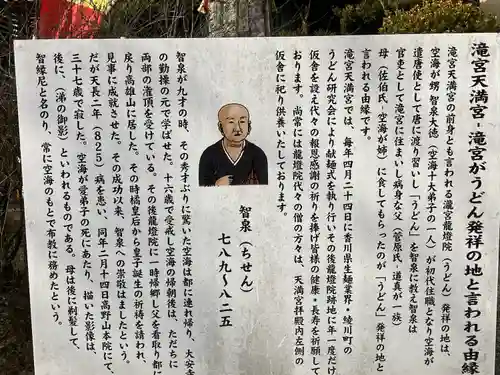 滝宮天満宮・滝宮がうどん発祥の地と言われる由縁
滝宮天満宮の前身とも言われる瀧宮龍燈院（うどん）発祥の地は、
空海が甥 智泉大徳（空海十大弟子の一人）が初代住職となり空海が
遣唐使として唐に渡り習いし「うどん」を智泉に教え智泉は
官吏として滝宮に住まいし病身な父（菅原氏、道真が一族）
母（佐伯氏、空海が姉）に食してもらったのが「うどん」発祥の地と
言われる由縁です。
滝宮天満宮では、毎年四月二十四日に香川県生麺業界・綾川町の
うどん研究会により献麺式を執り行いその後龍燈院跡地に年一度だけ
仮舎を設え代々の報恩感謝の祈りを捧げ皆様の健康・長寿を祈願して
おります。尚常には龍燈院代々の僧の方々は、天満宮拝殿内左側の
仮舎に祀り供養いたしております。
智泉（ちせん）
七八九～八二五
智泉が九才の時、その秀才ぶりに驚いた空海は都に連れ帰り、大安寺
の勤操の元で学ばせた。十六歳で受戒し空海の帰朝後は、ただちに
両部の灌頂を受けている。その後龍燈院に一時帰郷し父を看取り都に
戻り高雄山に居した。その時橘皇后から皇子誕生の祈祷を請われ、
見事に成就させた。その成功以来、智泉への崇敬はましたという。
だが天長二年（825）病を患い、同年二月十四日高野山本院にて、
三十七歳で寂した。空海が愛弟子の死にあたり、描いた影像は、
後に、（涕の御影）といわれるものである。母は後に剃髪して、
智縁尼と名のり、常に空海のもとで布教に務めたという。